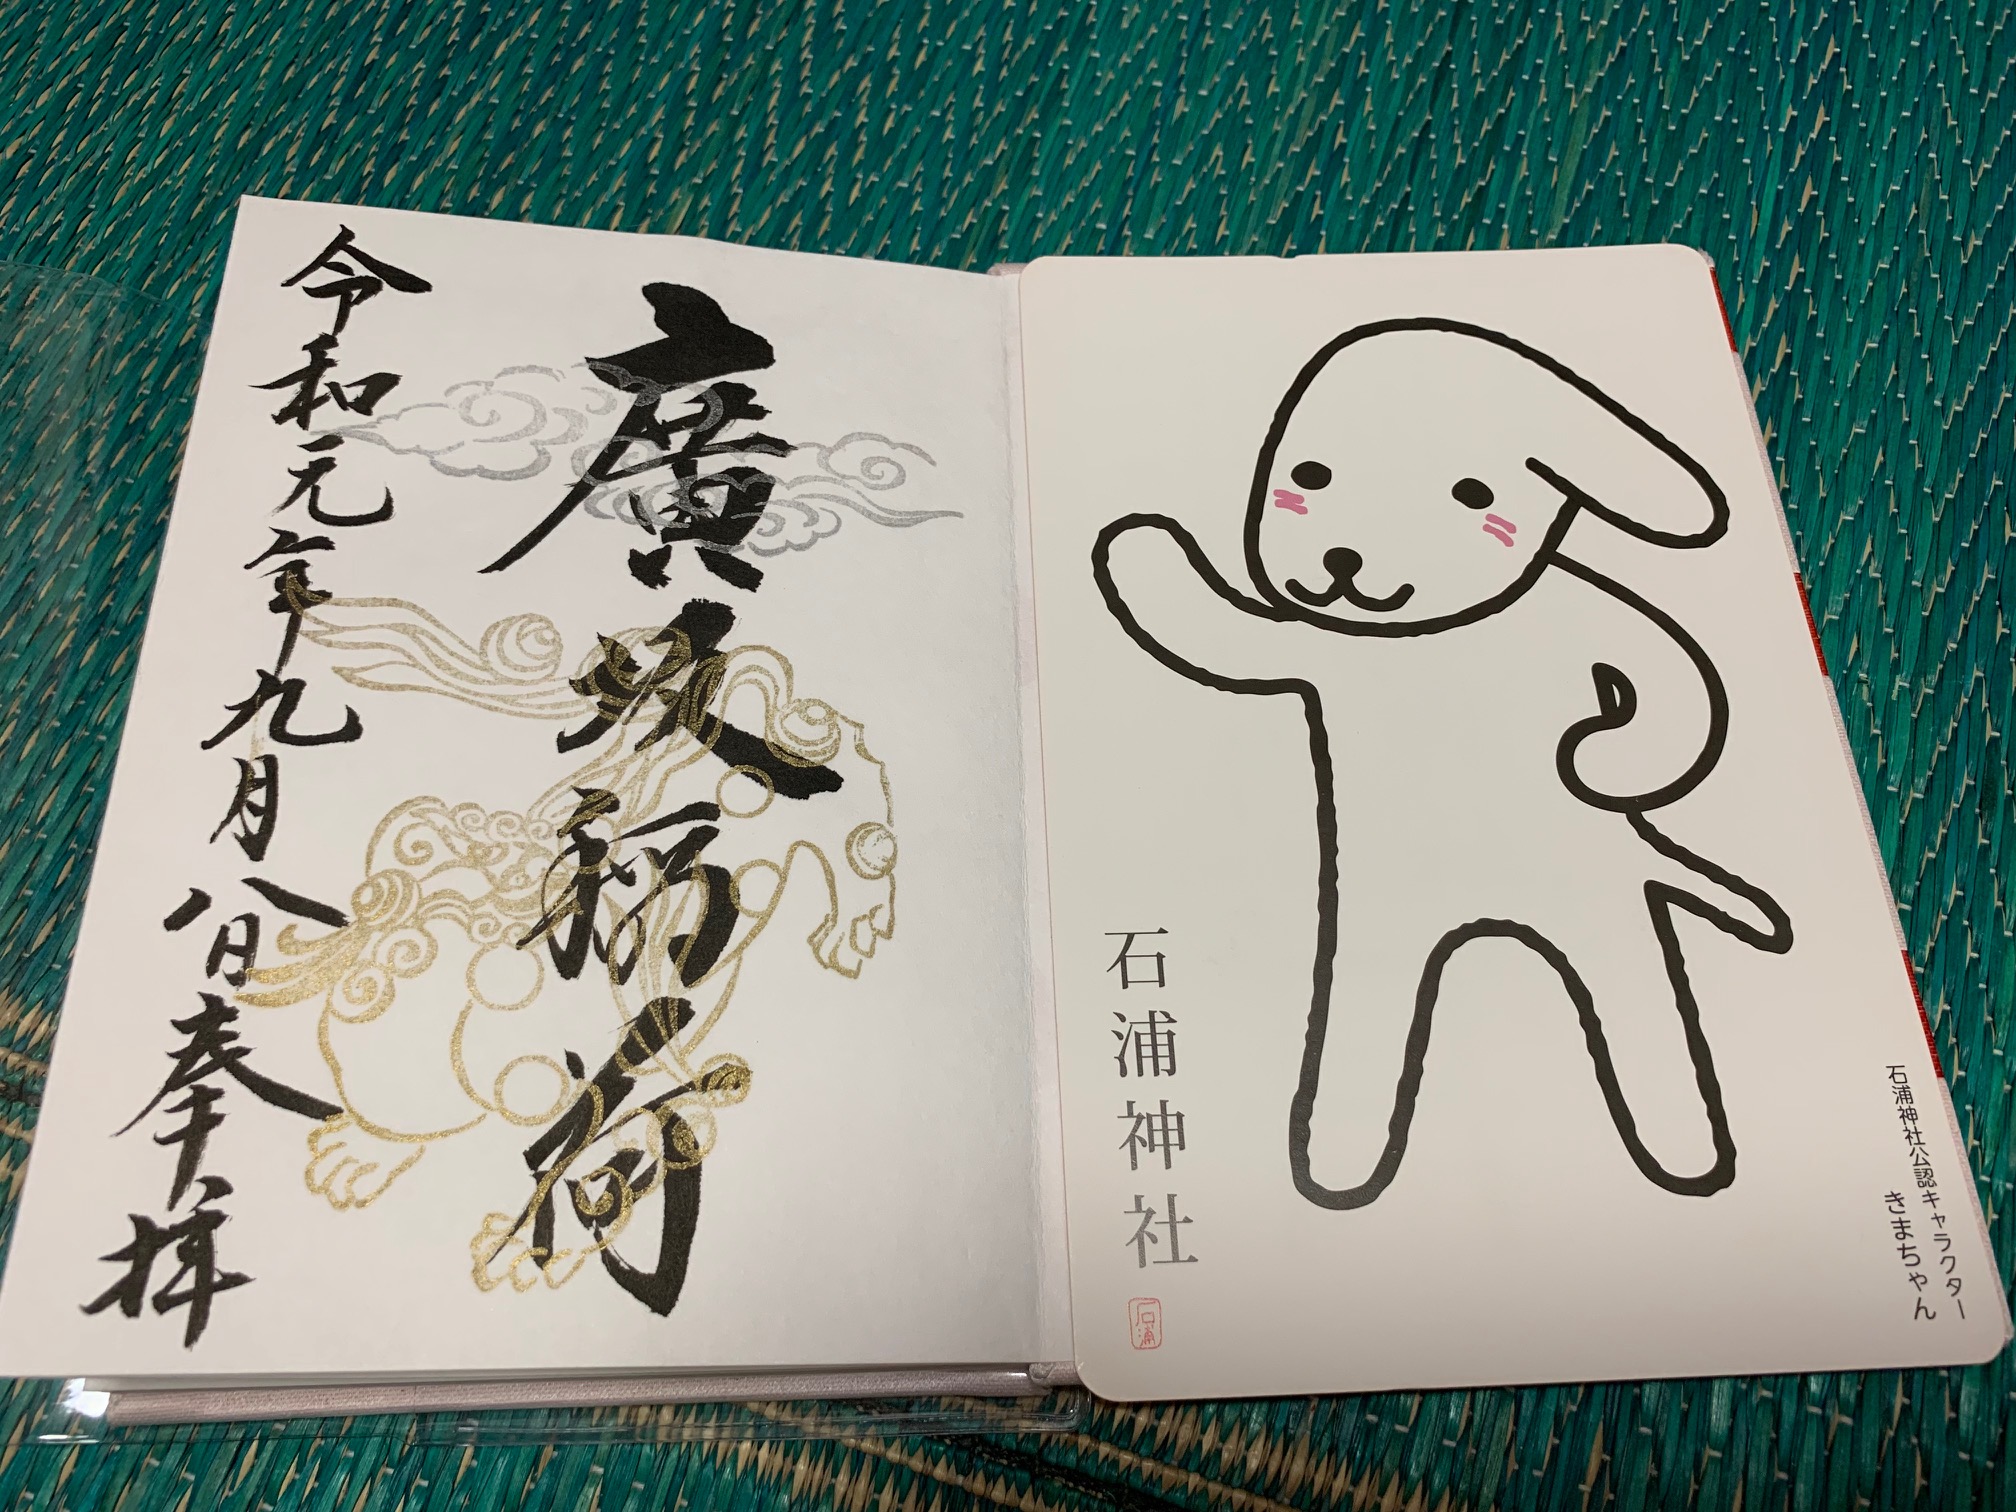 廣坂稲荷
令和元年九月八日奉拝
石浦神社公認キャラクター
きまちゃん
石浦神社
石浦